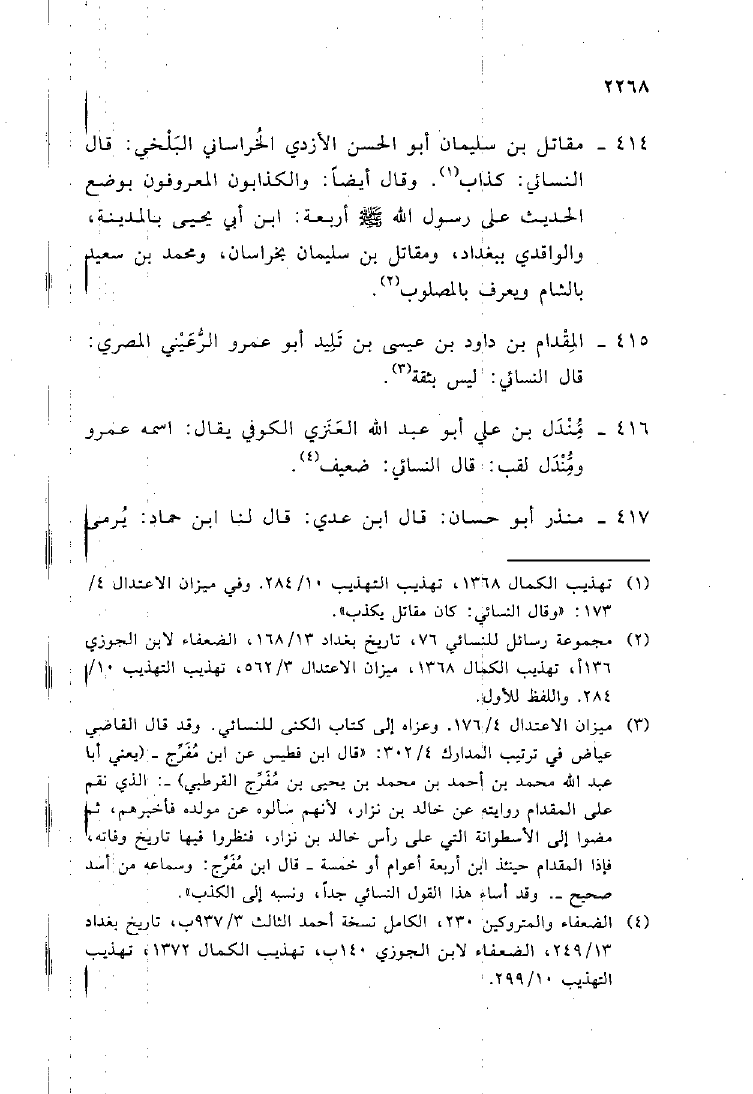 ٢٢٦٨
٤١٤ ـ مقاتل بن سليمان أبو الحسن الأزدي الخُراساني البَلْخي: قال
النسائي: كذاب(١). وقال أيضاً: والكذابون المعروفون بوضع
الحديث على رسول الله ﷺ أربعة: ابن أبي يحيى بالمدينة،
والواقدي ببغداد، ومقاتل بن سليمان بخراسان، ومحمد بن سعيد
بالشام ويعرف بالمصلوب(٢).
٤١٥ ـ المِقْدام بن داود بن عيسى بن تَلِيد أبو عمرو الرُّعَيْني المصري:
قال النسائي: ليس بثقة(٣).
٤١٦ ـ مُِنْدَل بن علي أبو عبد الله العَنَزي الكوفي يقال: اسمه عمرو
ومُِنْدَل لقب: قال النسائي: ضعيف(٤).
٤١٧ ـ منذر أبو حسان: قال ابن عدي: قال لنا ابن حماد: يُرمى
(١) تهذيب الكمال ١٣٦٨، تهذيب التهذيب ٢٨٤/١٠. وفي ميزان الاعتدال ٤/
١٧٣: «وقال النسائي: كان مقاتل يكذب».
(٢) مجموعة رسائل للنسائي ٧٦، تاريخ بغداد ١٦٨/١٣، الضعفاء لابن الجوزي
١٣٦أ، تهذيب الكمال ١٣٦٨، ميزان الاعتدال ٥٦٢/٣، تهذيب التهذيب ١٠/
٢٨٤. واللفظ للأول.
(٣) ميزان الاعتدال ١٧٦/٤. وعزاه إلى كتاب الكنى للنسائي. وقد قال القاضي
عياض في ترتيب المدارك ٣٠٢/٤: «قال ابن فطيس عن ابن مُفَرِّج ـ (يعني أبا
عبد الله محمد بن أحمد بن محمد بن يحيى بن مُفَرِّج القرطبي) ـ: الذي نقم
على المقدام روايته عن خالد بن نزار، لأنهم سألوه عن مولده فأخبرهم، ثم
مضوا إلى الأسطوانة التي على رأس خالد بن نزار، فنظروا فيها تاريخ وفاته،
فإذا المقدام حينئذ ابن أربعة أعوام أو خمسة ـ قال ابن مُفَرِّج: وسماعه من أسد
صحيح ـ. وقد أساء هذا القول النسائي جداً، ونسبه إلى الكذب».
(٤) الضعفاء والمتروكين ٢٣٠، الكامل نسخة أحمد الثالث ٩٣٧/٣ب، تاريخ بغداد
٢٤٩/١٣، الضعفاء لابن الجوزي ١٤٠ب، تهذيب الكمال ١٣٧٢، تهذيب
التهذيب ٢٩٩/١٠.